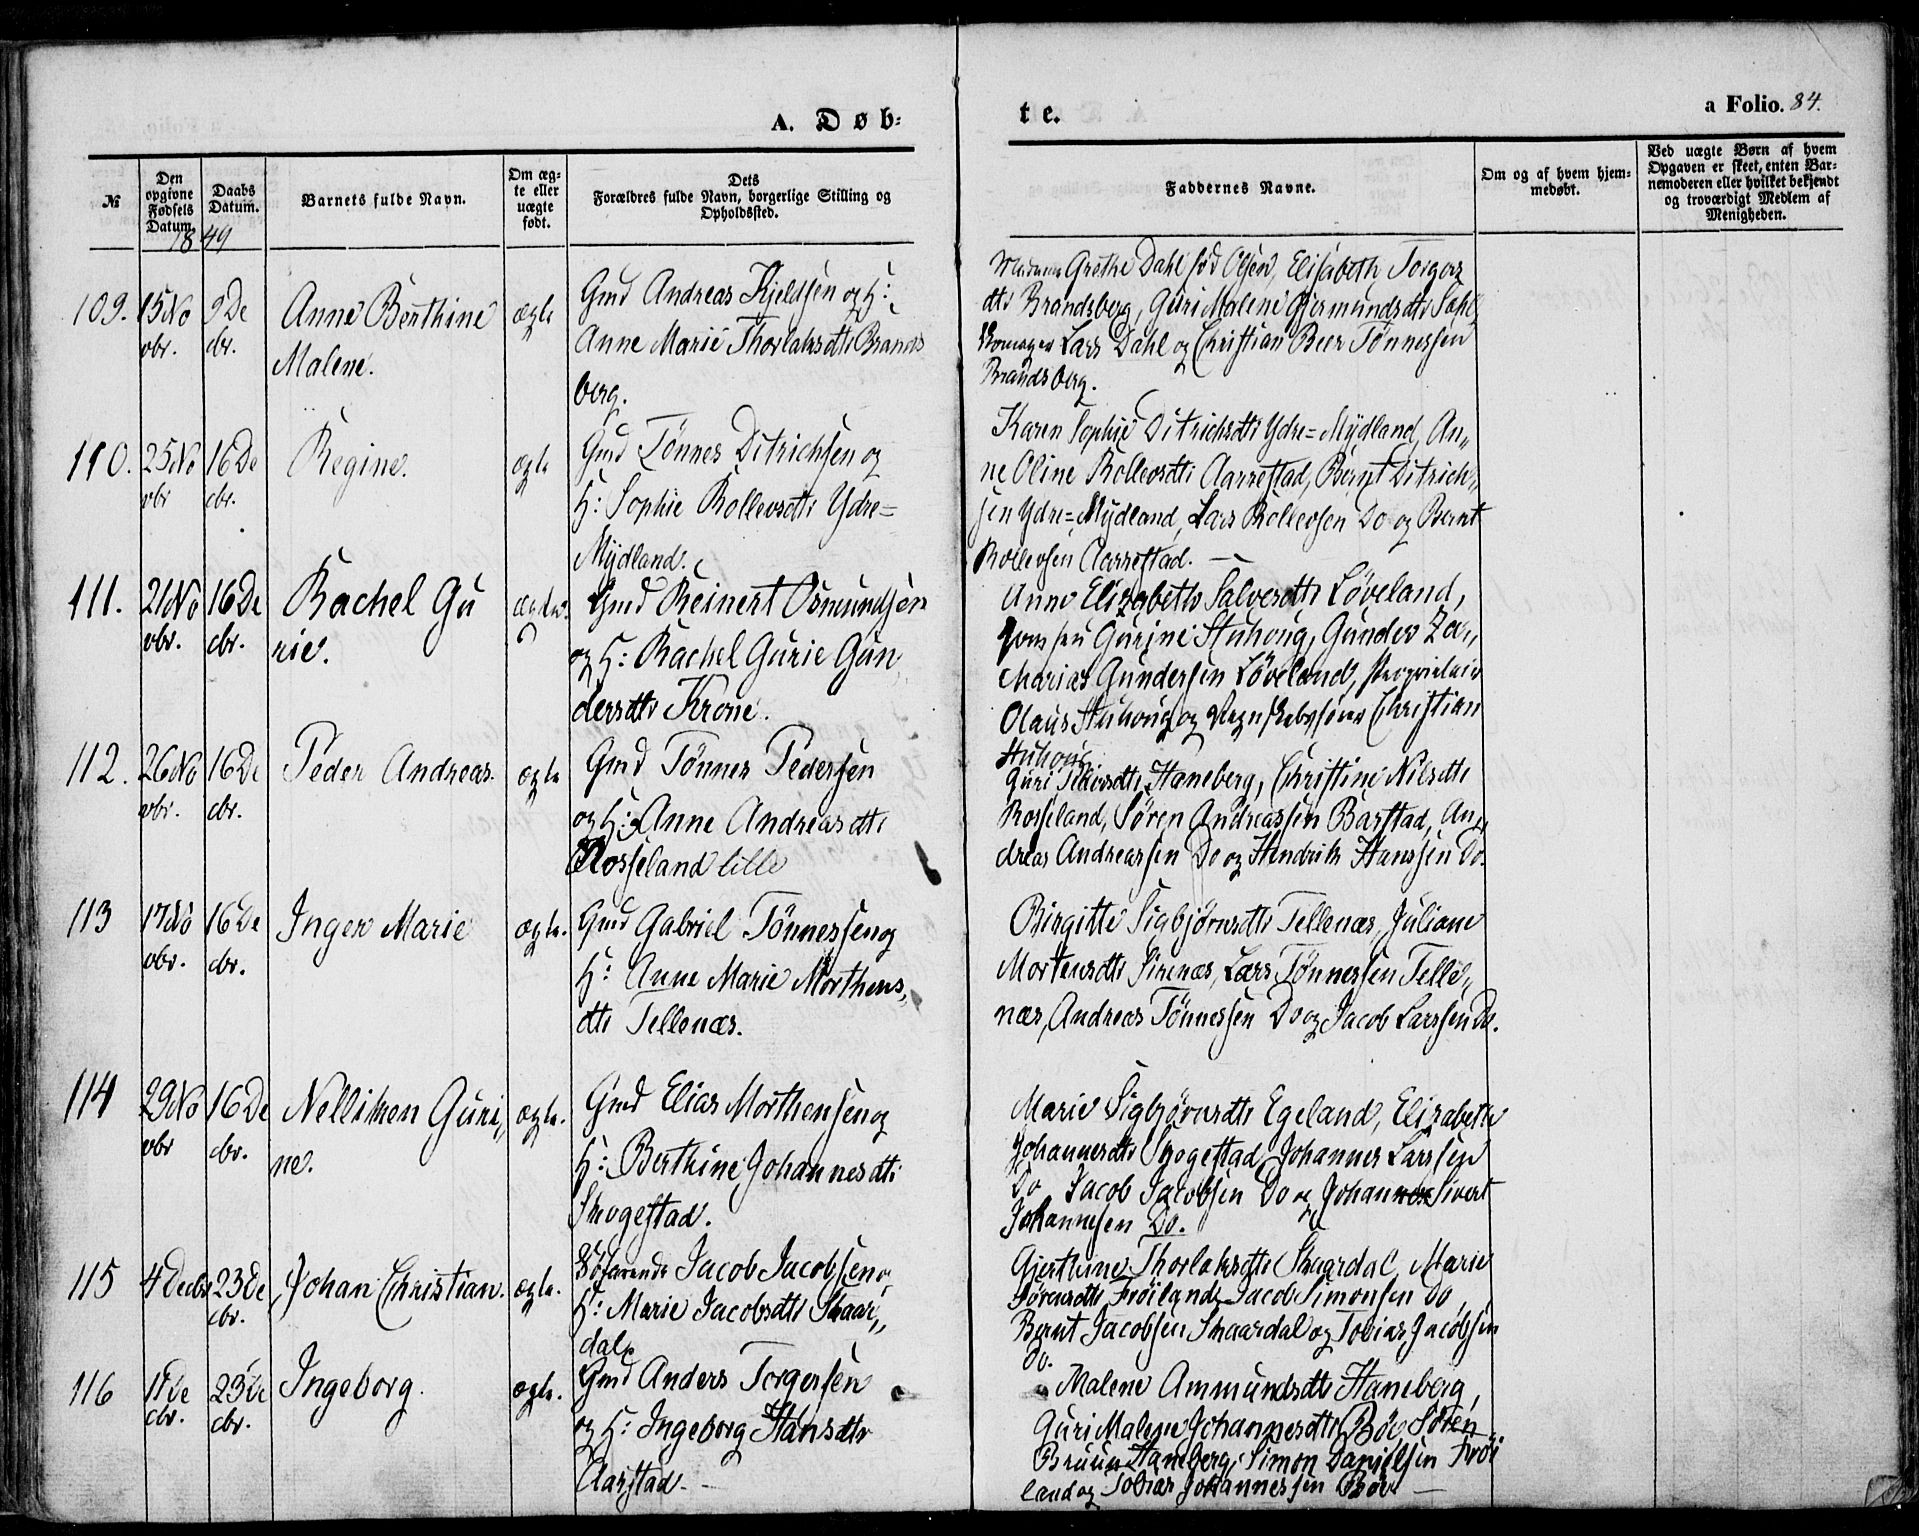 A. Døb=
te.
a Folio. 84.
№
Den opgivne Fødsels Datum.
Daabs Datum.
Barnets fulde Navn.
Om ægte eller uægte født.
Dets Forældres fulde Navn, borgerlige Stilling og Opholdssted.
Faddernes Navne.
Om og af hvem hjemmedøbt.
Ved uægte Børn af hvem Opgaven er skeet, enten Barnemoderen eller hvilket bekjendt og troværdigt Medlem af Menigheden.
1849
109. 15 No 9 De Anne Berthine ægte Gmd Andreas Kjeldsen og H:
vbr. cbr. Malene. Anne Marie Thorlaksdtr Brands
berg.
Madame Grethe Dahl fød Olsen, Elisabeth Torgers
dtr Brandsberg, Guri Malene Gjermundsdtr Dahl,
Skomager Lars Dahl og Christian Beer Tønnessen
Brandsberg.
110. 25 No 16 De Regine. ægte Gmd Tønnes Ditrichsen og
vbr cbr. H: Sophie Rollevsdtr Ydre=
Mydland.
Karen Sophie Ditrichsdtr Ydre=Mydland, An,,
ne Oline Rollevsdtr Aarrestad, Bernt Ditrich,,
sen Ydre=Mydland, Lars Rollevsen Do og Bernt
Rollevsen Aarrestad. —
111. 21 No 16 De Rachel Gu Gmd Reinert Osmundsen
vbr. cbr. rie. og H: Rachel Gurie Gun
dersdtr Krone.
Anne Elizabeth Salvesdtr Løveland,
Jomfru Gurine Stuhoug, Gunder Za,,
charias Gundersen Løveland, Proprietair
Olaus Stuhoug og Christian
Stuhoug
112. 26 No 16 De Peder Andreas. ægte Gmd Tønnes Pedersen
vbr. cbr. og H: Anne Andreasdtr
Rosseland lille
Guri Haneberg, Christine Nilsdtr
Rosseland, Søren Andreassen Barstad, An,,
dreas Andreassen Do og Hendrik Hanssen Do.
113 17 No 16 De Inger Marie ægte. Gmd Gabriel Tønnessen og
vbr. cbr. H: Anne Marie Morthens,,
dtr Tellenæs.
Birgitte Sigbjørnsdtr Tellenæs, Juliane
Mortensdtr Sirenæs, Lars Tønnessen Telle,,
næs, Andreas Tønnessen Do og Jacob Larssen Do.
114 29 No 16 De Nellikken Guri,, ægte. Gmd Elias Morthensen og
vbr cbr. ne. H: Berthine Johannesdtr
Skogestad.
Marie Sigbjørnsdtr Egeland, Elizabeth
Johannesdtr Skogestad, Johannes Larssen
Do Jacob Jacobsen Do og Johannes Sivert
Johannesen Do.
115 4 Decbr 23 De Johan Christian. ægte. Søfarende Jacob Jacobsen og
cbr. H: Marie Jacobsdtr Skaar,,
dal
Gjerthine Thorlaksdtr Skaardal, Marie
Sørensdtr Frøiland, Jacob Simonsen Do,
Bernt Jacobsen Skaardal og Tobias Jacobsen
Do.
116 11 De 23 De Ingeborg. ægte. Gmd Anders Torgersen
cbr. cbr. og H: Ingeborg Hansdtr
Aarstad. —
Malene Ammundsdtr Haneberg,
Guri Malene Johannesdtr Bøe, Søren
Bruun Haneberg, Simon Danielsen Frøi
land og Tobias Johannessen Bøe —